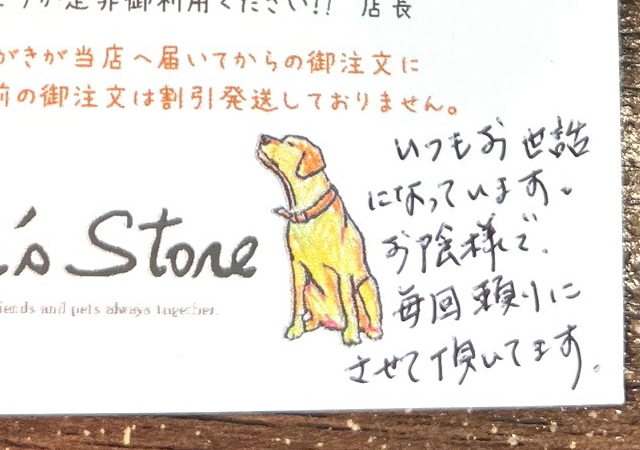 是非御利用ください!! 店長
がきが当店へ届いてからの御注文に
前の御注文は割引発送しておりません。
いつもお世話
になっています。
お陰様で、
毎回頼りに
させて頂いてます。
's Store
iends and pets always together.